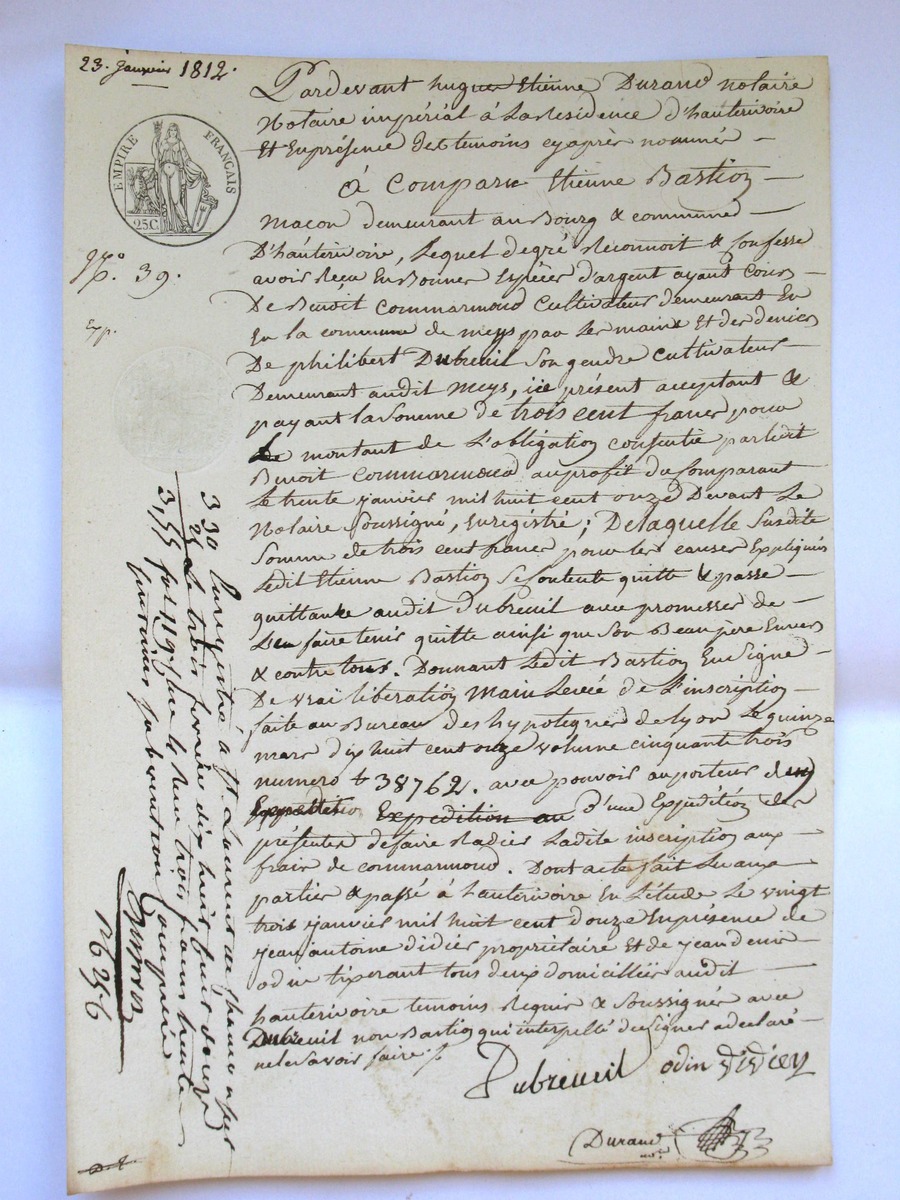 23. Janvier 1812.
EMPIRE FRANÇAIS
25C.
No. 39.
Exp.
Pardevant hugue Etienne Durand notaire
Notaire impérial à La Residence d'hauterivoire
Et En présence des temoins cy après nommés —
à Comparu Etienne Bastion —
maçon demeurant au Bourg & commune d —
D'hauterivoire, Lequel de gré Reconnoit & Confesse
avoir Reçu En Bonnes Espèces d'argent ayant Cours —
De Benoit Commarmond Cultivateur demeurant En
En la commune de meys par les mains Et des deniers
De philibert Dubreuil Son gendre cultivateur —
Demeurant audit Meys, ice présent acceptant &
payant la Somme de trois cent francs pour
Le montant de L'obligation consentie par ledit
Benoit Commarmond au profit du Comparant
Le trente janvier mil huit cent onze Devant Le
Notaire Soussigné, Enregistré; De laquelle Susdite
Somme de trois cent francs pour les causes Expliquées
Ledit Etienne Bastion Se Contente quitte & passe —
quittance audit Dubreuil avec promesses de —
L'en faire tenir quitte ainsi que Son Beau père Envers
& contre tous. Donnant Ledit Bastion En Signe —
De vrai libération Main Levée de L'inscription —
faite au Bureau des hypotegnes de Lyon Le quinze
mars dix huit cent onze volume cinquante trois
numero 38762. avec pouvoir au porteur d'un
Expeditio Expedition au d'une Expédition des
présentes de faire Radier Ladite inscription aux —
frais de commarmond. Dont acte fait Lu aux —
parties & passé à hauterivoire En L'étude Le vingt
trois janvier mil huit cent douze En présence de
jean antoine didier propriétaire Et de jean denis —
odin tixerant tous deux domiciliés audit —
hauterivoire temoins Requis & Soussignés avec
Dubreuil non Bastion qui interpellé de Signer a déclaré —
ne le Savoir faire ./.
Dubreuil odin Didier
Durand
Enregistré à St. Laurent de chamousset
le trois fevrier dix huit cent douze
fol. 119. Reçu trois francs trente
centimes subvention comprise
3 30
25
3,55
12636